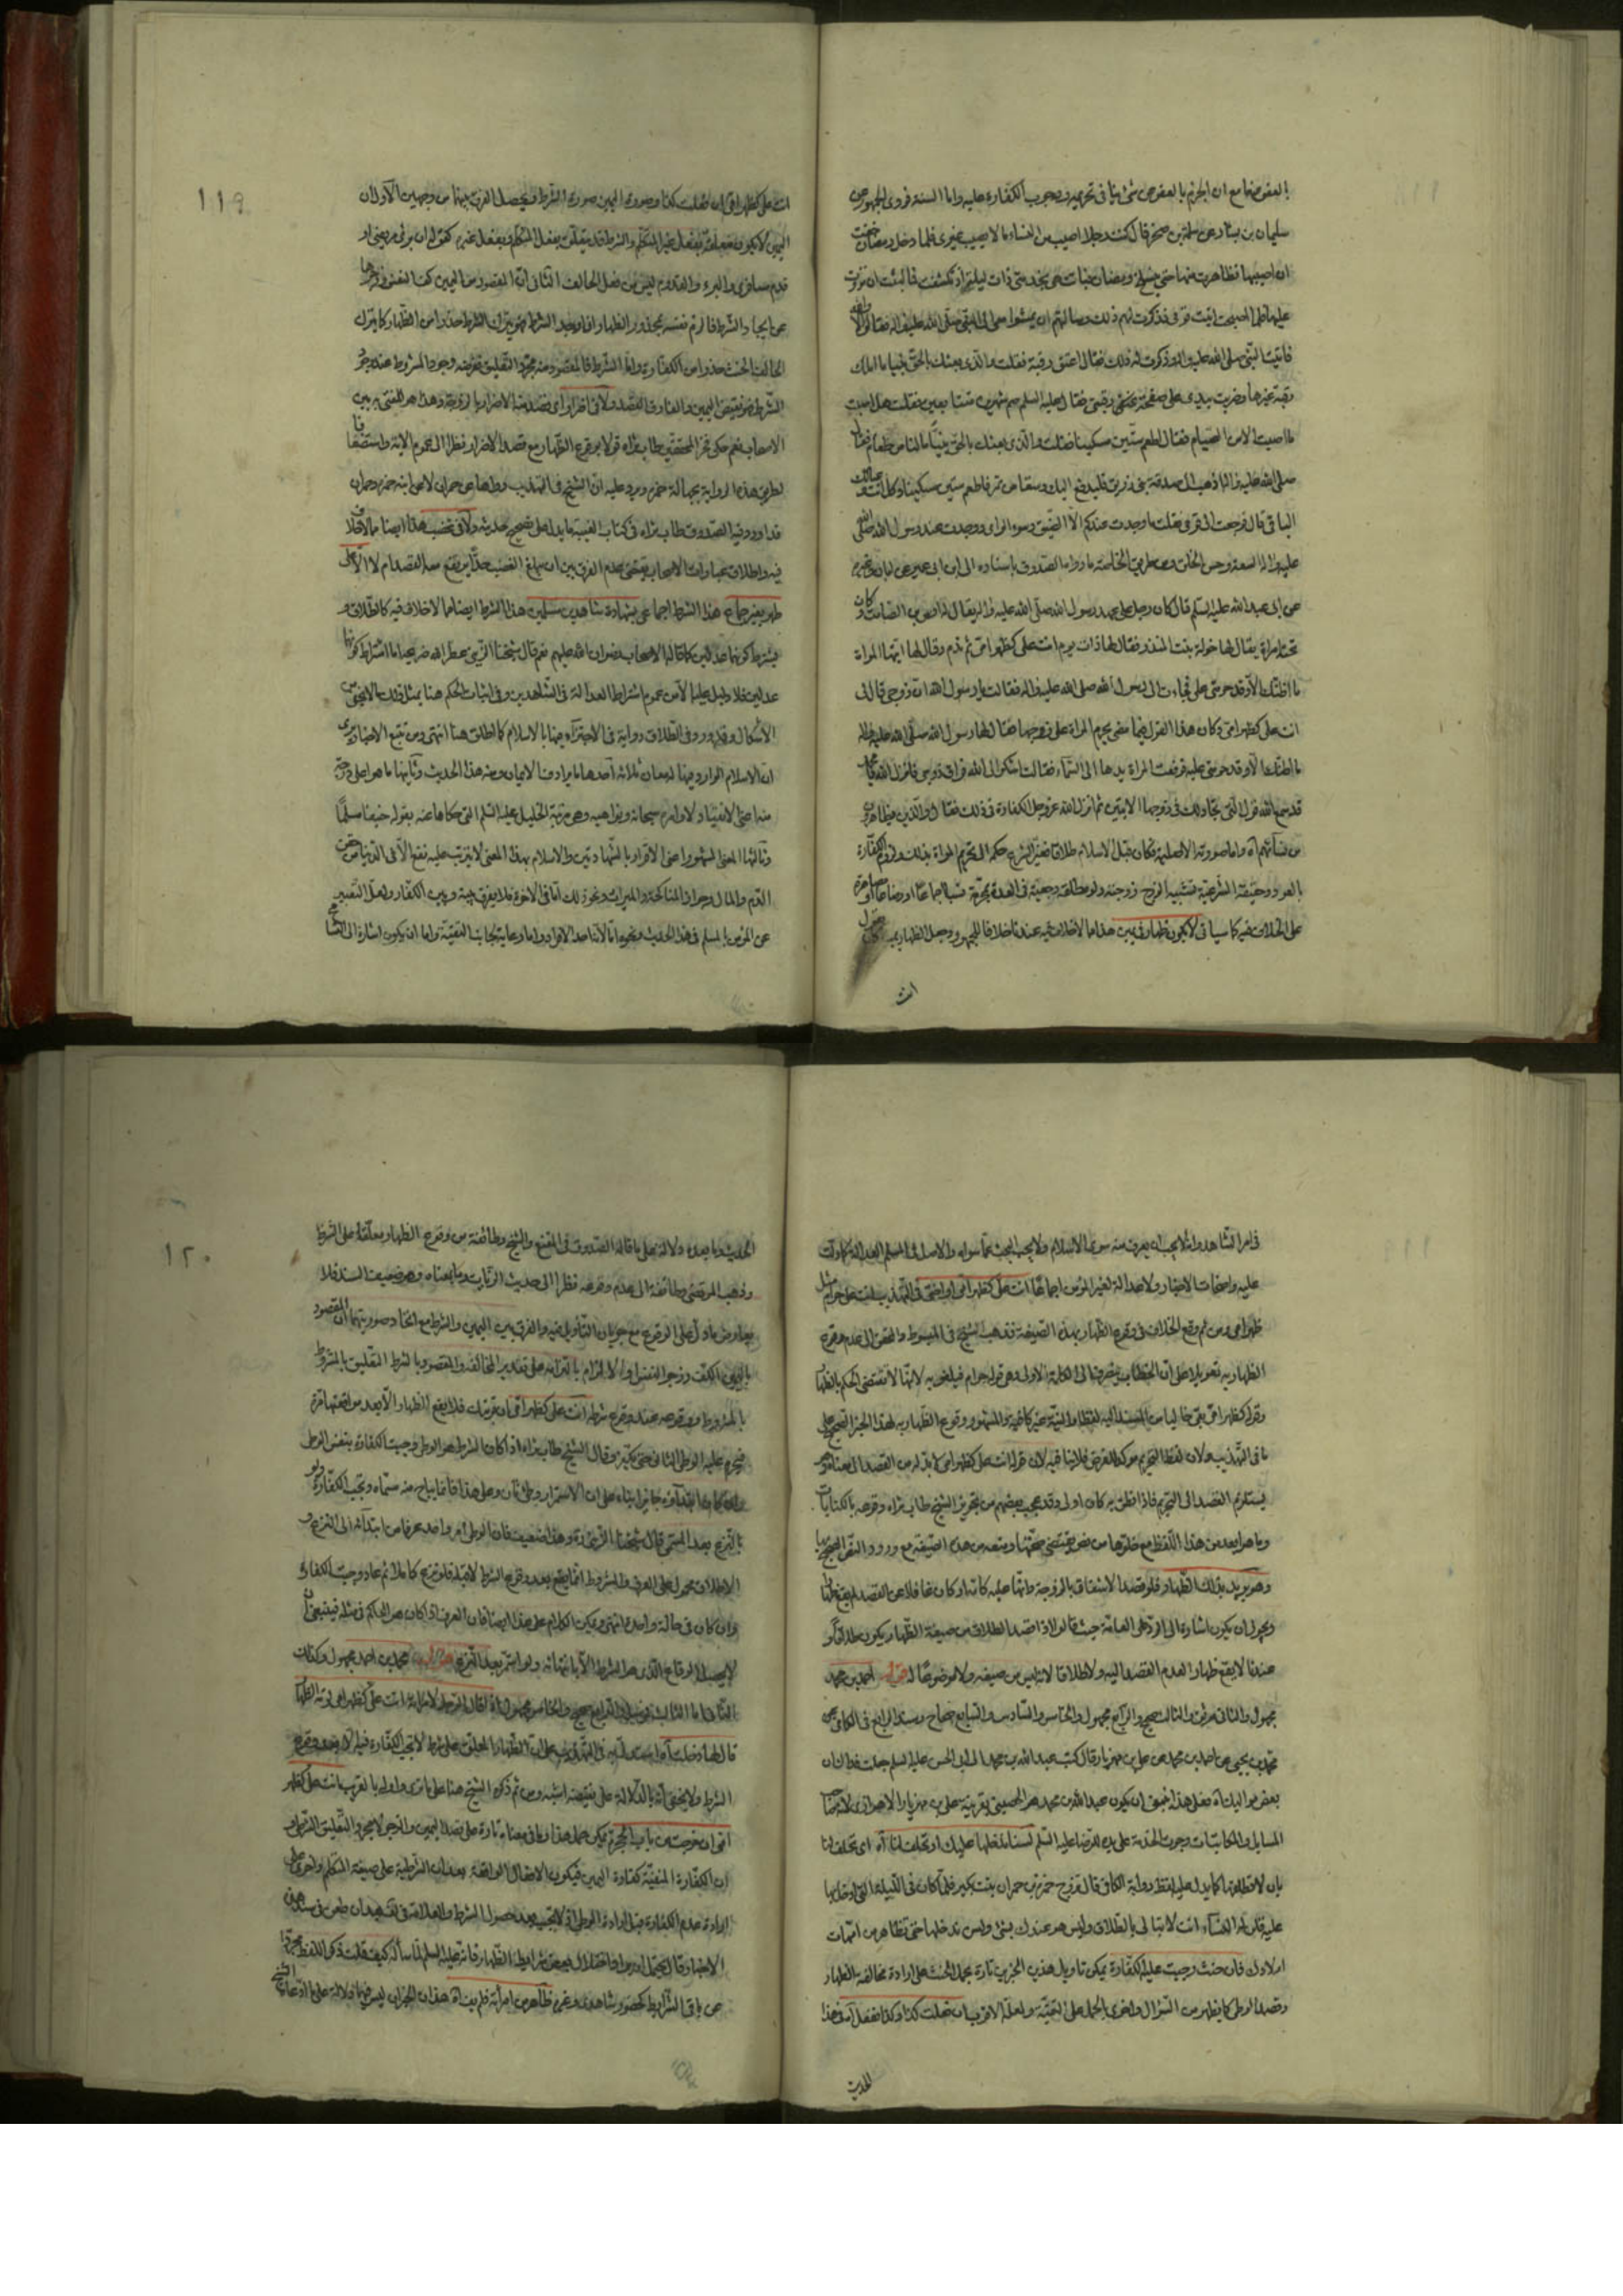 العفو عنها مع ان الجزم بالعفو عن شئ ينافى تحريمه ووجوب الكفارة عليه واما السنة فروى الجمهور عن
سليمان بن يسار عن سلمة بن صخر قال كنت رجلا اصيب من النساء ما لا يصيب غيرى فلما دخل رمضان خفت
ان اصيبها فظاهرت منها حتى ينسلخ رمضان فبينا هى تخدمنى ذات ليلة اذ تكشفت فما لبثت ان نزوت
عليها فلما اصبحت اتيت قومى فذكرت لهم ذلك وسالتهم ان يمشوا معى الى النبى صلى الله عليه واله فقالوا لا والله
فاتيت النبى صلى الله عليه واله وذكرت له ذلك فقال اعتق رقبة فقلت والذى بعثك بالحق نبيا ما املك
رقبة غيرها وضربت بيدى على صفحة عنقى رقبتى فقال عليه السلم صم شهرين متتابعين فقلت هل اصبت
ما اصبت الا من الصيام فقال اطعم ستين مسكينا فقلت والذى بعثك بالحق نبيا ما لنا من طعام فقال
صلى الله عليه واله اذهب الى صدقة بنى زريق فليدفع اليك وسقا من تمر فاطعم ستين مسكينا وكل انت وعيالك
الباقى قال فرجعت الى قومى فقلت ما وجدت عندكم الا الضيق وسوء الراى ووجدت عند رسول الله صلى الله
عليه واله السعة وحسن الخلق ومن طريق الخاصة ما رواه الصدوق باسناده الى ابن ابى عمير عن ابان وغيره
عن ابى عبد الله عليه السلم قال كان رجل على عهد رسول الله صلى الله عليه واله يقال له اوس بن الصامت وكان
تحته امراة يقال لها خولة بنت المنذر فقال لها ذات يوم انت على كظهر امى ثم ندم وقال لها ايتها المراة
ما اظنك الا وقد حرمتى على فجاءت الى رسول الله صلى الله عليه واله فقالت يا رسول الله ان زوجى قال لى
انت على كظهر امى وكان هذا القول فيما مضى يحرم المراة على زوجها فقال لها رسول الله صلى الله عليه واله
ما اظنك الا وقد حرمتى عليه فرفعت المراة يدها الى السماء فقالت اشكو الى الله فراق زوجى فانزل الله يا محمد
قد سمع الله قول التى تجادلك فى زوجها الايتين ثم انزل الله عز وجل الكفارة فى ذلك فقال والذين يظاهرون
من نسائهم آه واما صورته الاصلية فكان قبل الاسلام طلاقا فغير الشرع حكمه الى تحريم المراة بذلك ولزوم الكفارة
بالعود وحقيقته الشرعية تشبيه الزوج زوجته ولو مطلقة رجعية فى العدة بمحرمة نسبا اجماعا او رضاعا او مصاهرة
على الخلاف فيه كما سياتى لا يكون ظهار فى يمين هذا مما لا خلاف فيه عندنا خلافا للجمهور وجعل الظهار يمينا كان يقول
انت
انت على كظهر امى ان فعلت كذا وصورة اليمين صورة الشرط ويحصل الفرق بينهما من وجهين الاول ان
اليمين لا يكون متعلقة بفعل غير المتكلم والشرط قد يتعلق بفعل المتكلم وبفعل غيره كقوله ان برئ مريضى او
قدم مسافرى والبرء والقدوم ليس من فعل الحالف الثانى ان المقصود من اليمين كف النفس وزجرها
عن ايجاد الشرط فالزم نفسه بمحذور الظهار اذا وجد الشرط فهو يترك الشرط حذرا من الظهار كما يترك
الحالف الحنث حذرا من الكفارة واما الشرط فالمقصود منه مجرد التعليق فغرضه وجود المشروط عند وجود
الشرط فهو نقيض اليمين والفارق القصد ولا فى اضرار اى قصد منه الاضرار بالزوجة وهذا هو المفتى به بين
الاصحاب نعم حكى فخر المحققين طاب ثراه قولا بوقوع الظهار مع قصد الاضرار نظرا الى عموم الاية واستضعافا
لطريق هذه الرواية بجهالة حمزة ويرد عليه ان الشيخ فى التهذيب رواها عن حمران لا عن ابنه حمزة وحمران
قد اورد فيه الصدوق طاب ثراه فى كتاب الغيبة ما يدل على تصحيح حديثه ولا فى غضب هذا ايضا مما لا خلاف
فيه واطلاق عبارات الاصحاب يقتضى عدم الفرق بين ان يبلغ الغضب حدا يرتفع معه القصد ام لا الا على
طهر بغير جماع هذا الشرط اجماعى بشهادة شاهدين مسلمين هذا الشرط ايضا مما لا خلاف فيه كالطلاق و
يشترط كونهما عدلين كما قاله الاصحاب رضوان الله عليهم نعم قال شيخنا الشهيد عطر الله ضريحه اما اشتراط كونهما
عدلين فلا دليل عليه الا من عموم اشتراط العدالة فى الشاهدين وفى اثبات الحكم هنا بمثل ذلك ما لا يخفى من
الاشكال وقد ورد فى الطلاق رواية فى الاجتزاء فيها بالاسلام كما اطلق هنا انتهى ومن تتبع الاخبار يرى
ان الاسلام الوارد فيها لمعان ثلاثة احدها ما يرادف الايمان ومنه هذا الحديث وثانيها ما هو اعلى درجة
منه اعنى الانقياد لاوامره سبحانه ونواهيه وهى مرتبة الخليل عليه السلم التى حكاها عنه بقوله حنيفا مسلما
وثالثها المعنى المشهور اعنى الاقرار بالشهادتين والاسلام بهذا المعنى لا يترتب عليه نفع الا فى الدنيا من حقن
الدم والمال وجواز المناكحة والميراث ونحو ذلك اما فى الاخرة فلا يفرق بينه وبين الكفار ولعل التعبير
عن المؤمن بالمسلم فى هذا الحديث ونحوه اما لانه احد الافراد واما رعاية لجانب التقية واما ان يكون اشارة الى التسامح
١١٩
فى امر الشاهد وانه لا يجب ان يعرف منه سوى الاسلام ولا يجب البحث عما سواه والاصل فى المسلم العدالة كما دلت
عليه واضحات الاخبار ولا عدالة لغير المؤمن اجماعا انت على كظهر امى او اختى فى التهذيب انت على حرام مثل
ظهر امى ومن ثم وقع الخلاف فى وقوع الظهار بهذه الصيغة فذهب الشيخ فى المبسوط والمحقق الى عدم وقوع
الظهار به تعويلا على ان الخطاب ينصرف الى الكلمة الاولى وهى قوله حرام فيلغو به لانها لا تقتضى الحكم بالظهار
وقوله كظهر امى بقى خاليا من المسند اليه لفظا والنية غير كافية والمشهور وقوع الظهار به لهذا الخبر الصحيح على
ما فى التهذيب ولان لفظ التحريم مؤكد للغرض فلا ينافيه لان قوله انت على كظهر امى لا بد له من القصد الى معناه وهو
يستلزم القصد الى التحريم فاذا نطق به كان اولى وقد عجب بعضهم من تجويز الشيخ طاب ثراه وقوعه بالكنايات
وما هو ابعد من هذا اللفظ مع خلوها من نص يقتضى صحتها ومنعه من هذه الصيغة مع ورود النص الصحيح بها
وهو يريد بذلك الظهار فلو قصد الاشفاق بالزوجة وانها عليه كامه او كان غافلا عن القصد لم يقع ظهارا
ويجوز ان يكون اشارة الى الرد على العامة حيث قالوا اذا قصد الطلاق من صيغة الظهار يكون طلاقا و
عندنا لا يقع ظهارا لعدم القصد اليه ولا طلاقا لانه ليس من صيغه ولا موضوعا له احمد بن محمد
مجهول والثانى موثق والثالث صحيح والرابع مجهول والخامس والسادس والسابع صحاح وسند الرابع فى الكافى عن
محمد بن يحيى عن احمد بن محمد عن على بن مهزيار قال كتب عبد الله بن محمد الى ابى الحسن عليه السلم جعلت فداك ان
بعض مواليك آه فعلى هذا ينبغى ان يكون عبد الله بن محمد هو الحصينى بقرينة على بن مهزيار الاهوازى
المسائل والمكاتبات وجرت الخدمة على يده للرضا عليه السلم لسنا ندخلها عليك او تحلف لنا آه اى تحلف لنا
بان لا تطلقها كما يدل عليه لفظ رواية الكافى قال تزوج حمزة بن حمران بنت بكير فلما كان فى الليلة التى ادخل بها
عليه قلن له النساء انت لا تبالى بالطلاق وليس هو عندك بشئ وليس ندخلها حتى تظاهر من امهات
اولادك فان حنث وجبت عليه الكفارة يمكن تاويل هذين الخبرين تارة بحمل الحنث على ارادة مخالفة الظهار
وقصد الوطى كما يظهر من السؤال واخرى بالحمل على التقية ولعله الاقرب ان فعلت كذا وكذا ففعل آه فى هذا
الحديث
الحديث وما بعده دلالة على ما قاله الصدوق فى المقنع والشيخ وطائفة من وقوع الظهار معلقا على الشرط
وذهب المرتضى وطائفة الى عدم وقوعه نظرا الى حديث الزيات وما بمعناه وهو ضعيف السند فلا
يعارض ما دل على الوقوع مع جريان التأويل فيه والفرق بين اليمين والشرط مع اتحاد صورتيهما ان المقصود
باليمين الكف وزجر النفس والالزام بالتزامه على تقدير المخالفة والمقصود بالشرط التعليق بالشروط
بالمشروط ووقوعه عند وقوع شرطه انت على كظهر امى ان قربتك فلا يقع الظهار الا بعد مواقعتها مرة
فيحرم عليه الوطى الثانى حتى يكفر وقال الشيخ طاب ثراه اذا كان الشرط هو الوطى وجبت الكفارة بنفس الوطى
وان كان ابتداؤه جائزا بناء على ان الاستمرار وطى ثان وعلى هذا فانما يباح منه مسماه وتجب الكفارة ولو
بالنزع بعد المسمى قال شيخنا الشهيد ره وهذا ضعيف فان الوطى امر واحد عرفا من ابتدائه الى النزع و
الاطلاق محمول على العرف والمشروط انما يقع بعد وقوع الشرط لا قبله فلو نزع كاملا ثم عاد وجبت الكفارة
وان كان فى حالة واحدة انتهى ويمكن الكلام على هذا ايضا فان العرف اذا كان هو الحاكم فى مثله فينبغى ان
لا يحصل الوقاع الذى هو الشرط الا بانتهائه ولو استمر بعد النزع محمد بن احمد مجهول وكذلك
الثانى اما الثالث فمرسل والرابع صحيح والخامس مجهول اذا قال الرجل لامراته انت على كظهر امى لزمه الظهار
قال لها دخلت آه استدل به فى التهذيب على ان الظهار المعلق على شرط لا تجب الكفارة فيه الا بعد وقوع
الشرط ولا يخفى ان بالدلالة على نقيضه اشبه ومن ثم ذكره الشيخ هنا على ما ترى واوله بالغريب انت على كظهر
امى ان خرجت من باب الحجرة يمكن حمل هذا وما فى معناه تارة على قصد اليمين والزجر لا مجرد التعليق الشرطى و
ان الكفارة المنفية كفارة اليمين فيكون الافعال الواقعة بعد ان الشرطية على صيغة التكلم واخرى على
ارادة عدم الكفارة قبل ارادة الوطى اى لا تجب بعد حصول الشرط والعلامة فى بعد ان طعن فى سند هذه
الاخبار قال يحتمل امرين اختلال بعض شرايط الظهار فانه عليه السلم لما سأله كيف قلت ذكر اللفظ مجردا
عن باقى الشرايط كحضور شاهدين وغيره ظاهر من امرأته فلم يف آه هذان الخبران ليس فيهما دلالة على ما ادعاه الشيخ
١٢٠